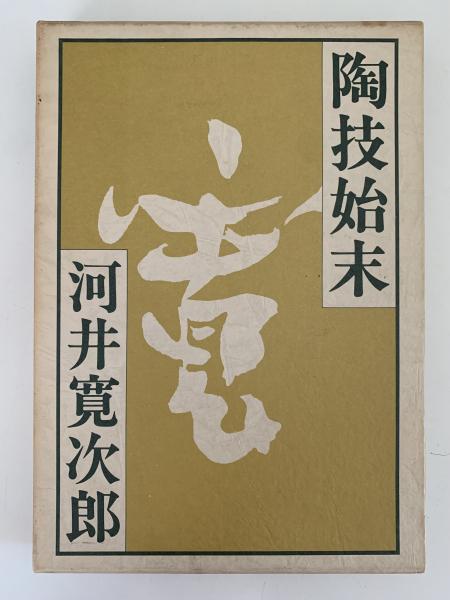 陶技始末
寛
河井寛次郎